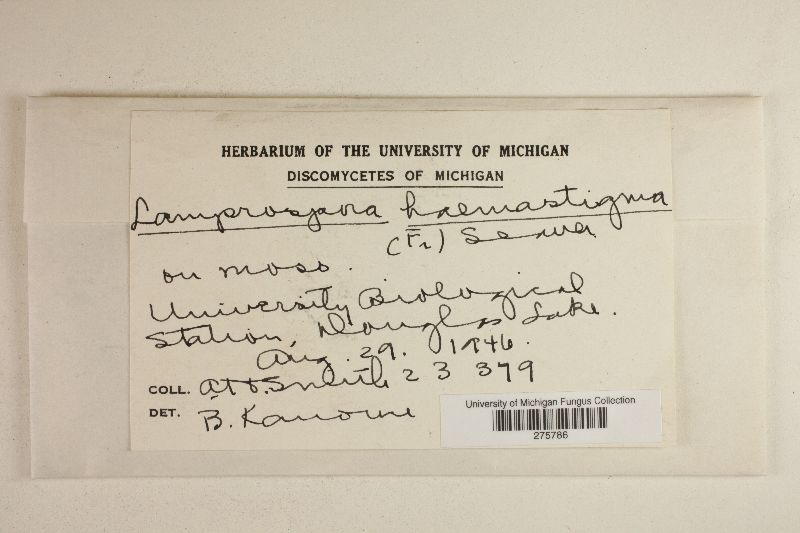 HERBARIUM OF THE UNIVERSITY OF MICHIGAN
DISCOMYCETES OF MICHIGAN
Lamprospora haemastigma
(Fr) Seaver
on moss.
University Biological
Station, Douglas Lake.
Aug. 29. 1946.
COLL. A H. Smith 23 379
DET. B. Kanouse
University of Michigan Fungus Collection
275786